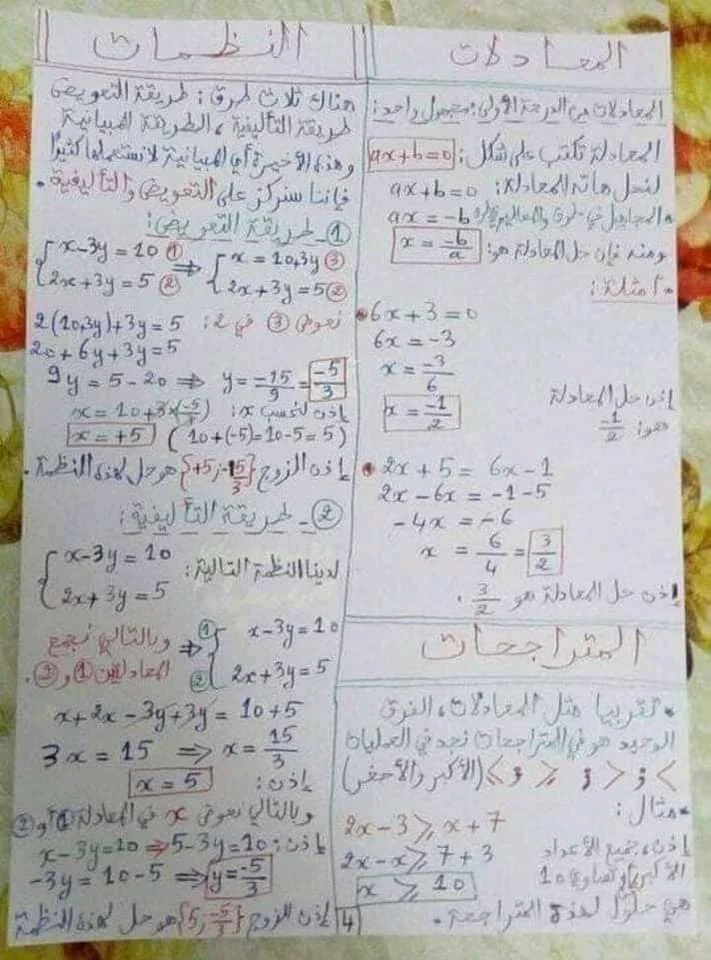 المعادلات
المعادلات من الدرجة الأولى بمجهول واحد:
المعادلة تكتب على شكل: ax+b=0
لنحل هاته المعادلة: ax+b=0
المجاهيل في طرف والمعاليم في ax = -b
ومنه فإن حل المعادلة هو: x = -b/a
أمثلة:
• 6x + 3 = 0
6x = -3
x = -3/6
إذن حل المعادلة x = -1/2
هو: -1/2
• 2x + 5 = 6x - 1
2x - 6x = -1 - 5
-4x = -6
x = 6/4 = 3/2
إذن حل المعادلة هو 3/2.
المتراجحات
• تقريبا مثل المعادلات، الفرق
الوحيد هو في المتراجحات نجد في العمليات
< و > و ⩾ و ⩽ (الأكبر والأصغر)
• مثال:
2x - 3 ⩾ x + 7
إذن، جميع الأعداد 2x - x ⩾ 7 + 3
الأكبر أو تساوي 10 x ⩾ 10
هي حلول لهذه المتراجحة.
النظمات
هناك ثلاث طرق: طريقة التعويض
طريقة التأليفية، الطريقة المبيانية
وهذه الأخيرة أي المبيانية لا نستعملها كثيرا
فإننا سنركز على التعويض والتأليفية.
① - طريقة التعويض:
{ x - 3y = 10 ① ⇒ { x = 10+3y ③
2x + 3y = 5 ② 2x + 3y = 5 ②
نعوض ③ في 2: 2(10+3y)+3y = 5
20 + 6y + 3y = 5
9y = 5 - 20 ⇒ y = -15/9 = -5/3
إذن لنحسب x: x = 10 + 3×(-5/3)
x = +5 (10+(-5)=10-5=5)
إذن الزوج {+5; -5/3} هو حل لهذه النظمة.
② - طريقة التأليفية:
لدينا النظمة التالية: { x - 3y = 10
2x + 3y = 5
وبالتالي نجمع ⇒ ① { x - 3y = 10
المعادلتين ① و ②. ② 2x + 3y = 5
x + 2x - 3y + 3y = 10 + 5
3x = 15 ⇒ x = 15/3
إذن: x = 5
وبالتالي نعوض x في المعادلة ① أو ②
إذن: x - 3y = 10 ⇒ 5 - 3y = 10
-3y = 10 - 5 ⇒ y = -5/3
إذن الزوج {5; -5/3} هو حل لهذه النظمة
4